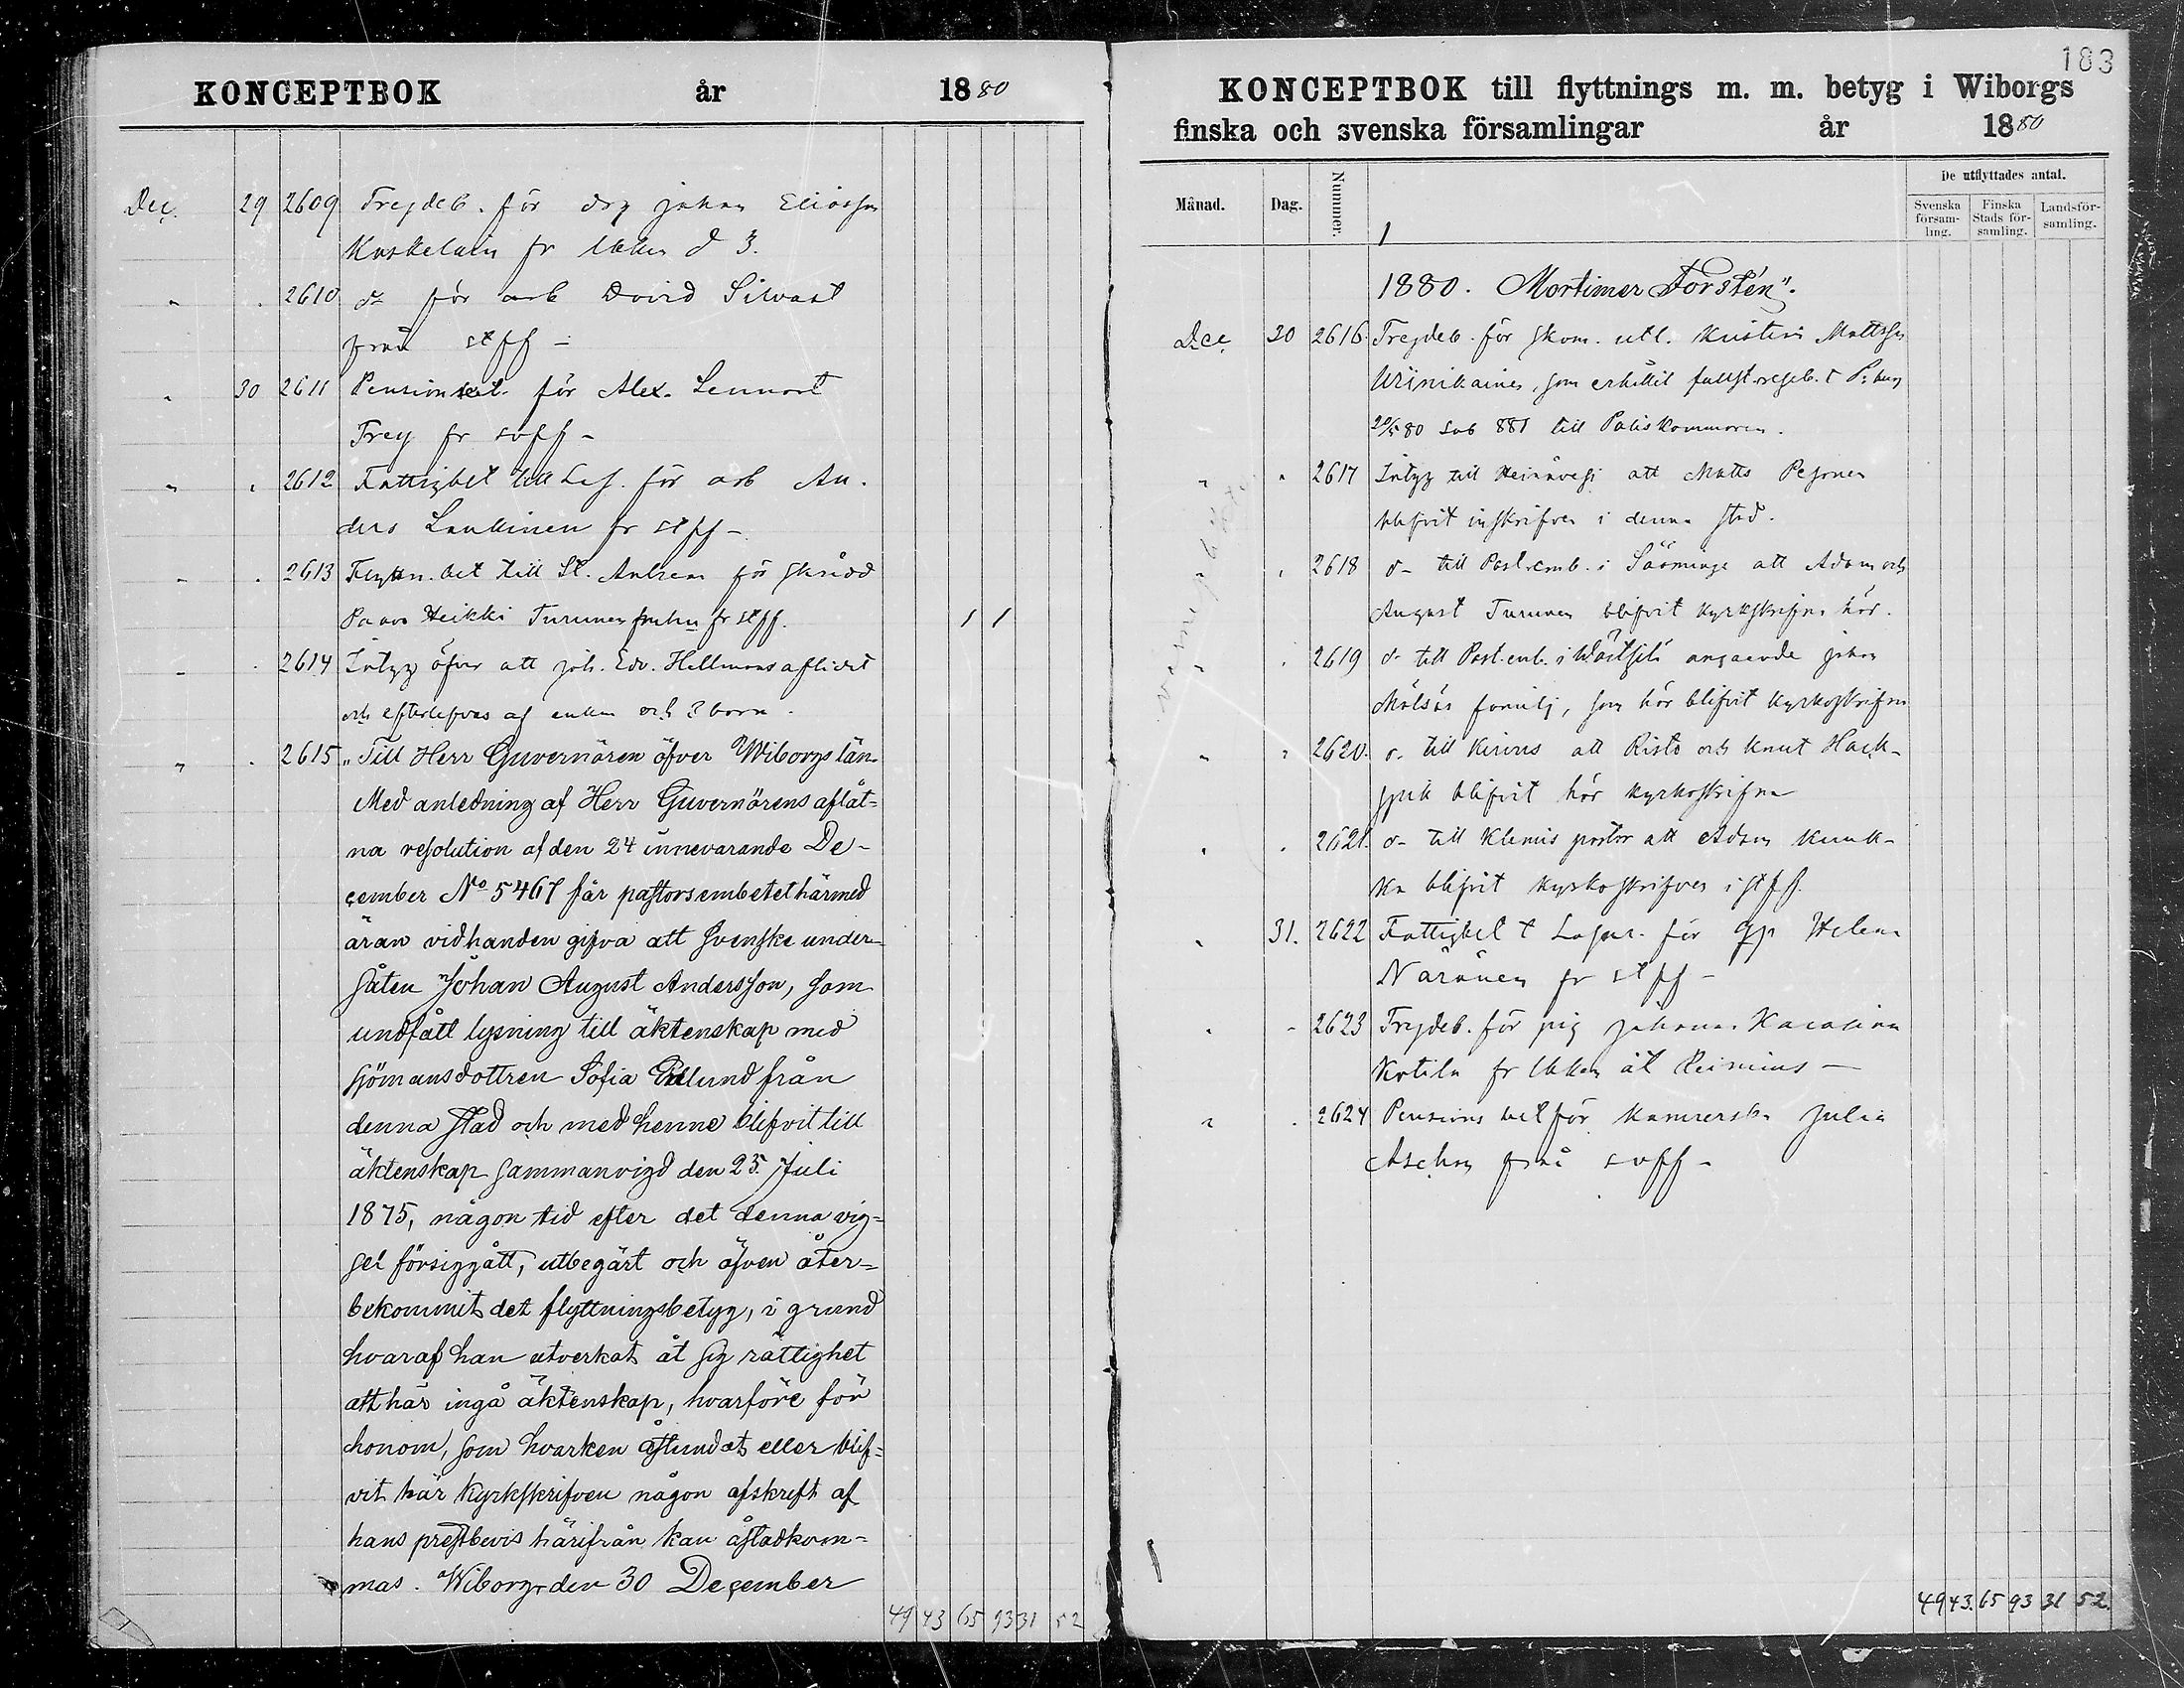 KONCEPTBOK år 1880
Dec. 29 2609 Frejdeb. för drg Johan Eliasson
Koskelain fr lkken d 3.
" . 2610 do för arb David Silvast
från stff -
" 30 2611 Pensionsbet. för Alex. Lennart
Frey fr svff -
" " 2612 Fattigbet till Las. för arb An-
ders Laukinen fr stff -
" . 2613 Flyttn. bet till St. Andreæ för skrädd
Paavo Heikki Turunen fr stff. 1 1
" . 2614 Intyg öfver att Joh. Edv. Hellman aflidit
och efterlefves af enka och 2 barn.
" . 2615 "Till Herr Guvernören öfver Wiborgs län.
Med anledning af Herr Guvernörens aflåt-
na resolution af den 24 innevarande De-
cember No 5467 får pastorsembetet härmed
äran vidhanden gifva att svenske under-
såten Johan August Andersson, som
undfått lysning till äktenskap med
sjömansdottren Sofia Edlund från
denna stad och med henne blifvit till
äktenskap sammanvigd den 25. Juli
1875, någon tid efter det denna vig-
sel försiggått, utbegärt och äfven åter-
bekommit det flyttningsbetyg, i grund
hvaraf han utverkat åt sig rättighet
att här ingå äktenskap, hvarföre för
honom, som hvarken åstundat eller blif-
vit här kyrkskrifven någon afskrift af
hans prestbevis härifrån kan åstadkom-
mas. Wiborg den 30 December
49 43 65 93 31 52
183
KONCEPTBOK till flyttnings m. m. betyg i Wiborgs
finska och svenska församlingar år 1880
Månad. Dag. Nummer. De utflyttades antal.
Svenska församling. Finska Stads församling. Landsförsamling.
1880. Mortimer Forstén".
Dec. 30 2616. Frejdeb. för skom. utl. Kristian Mattss
som erhållit fullst.
20/5 80 sub 881 till Poliskammaren.
" " 2617 Intyg till Heinävesi att Matts Pesonen
blifvit inskrifven i denna stad.
" " 2618 d- till Past.emb. i Sääminge att Adam och
August Turunen blifvit kyrkskrifna här.
" " 2619 d- till Past.emb. i angaende Johan
familj, som här blifvit kyrkoskrifven
" " 2620. d- till Kivinis att Risto och Knut Hack-
spik blifvit här kyrkoskrifna
" . 2621. d- till Klemis pastor att Adam Kunk-
ka blifvit kyrkoskrifven i stff.
" 31. 2622 Fattigbet t Lasar. för Helena
Näränen fr stff -
" - 2623 Frejdeb. för pig Johanna Karolina
Kotila fr lkken åt Reimius -
" . 2624 Pensions bet för Kamrerskn Julia
Aschan från svff -
49 43. 65 93 31 52.